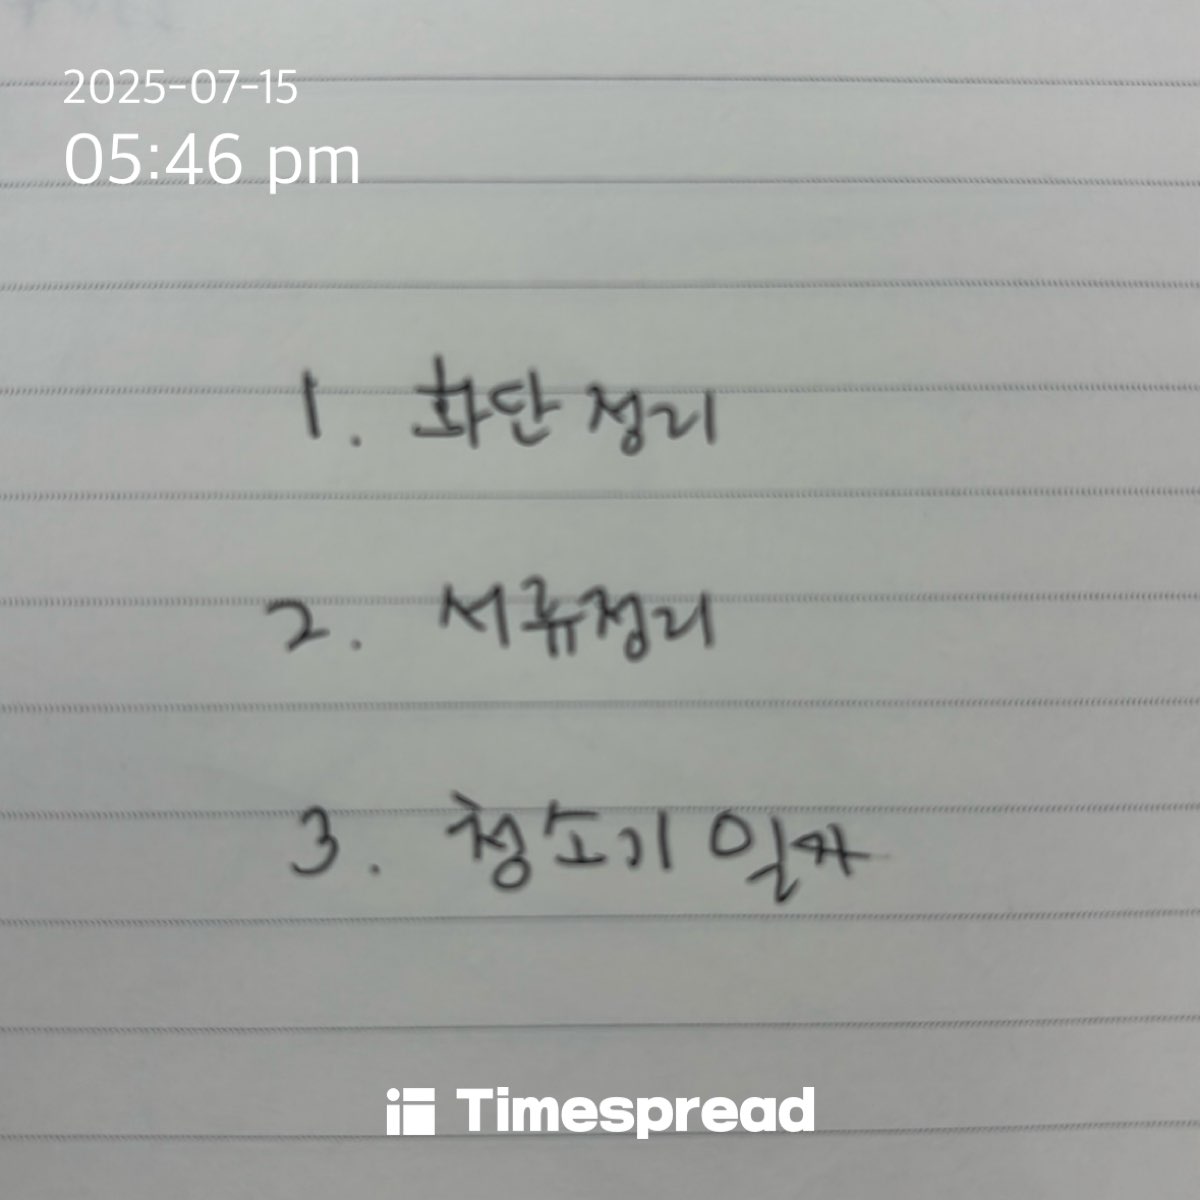 2025-07-15
05:46 pm
1. 화단 정리
2. 서류정리
3. 청소기
Timespread